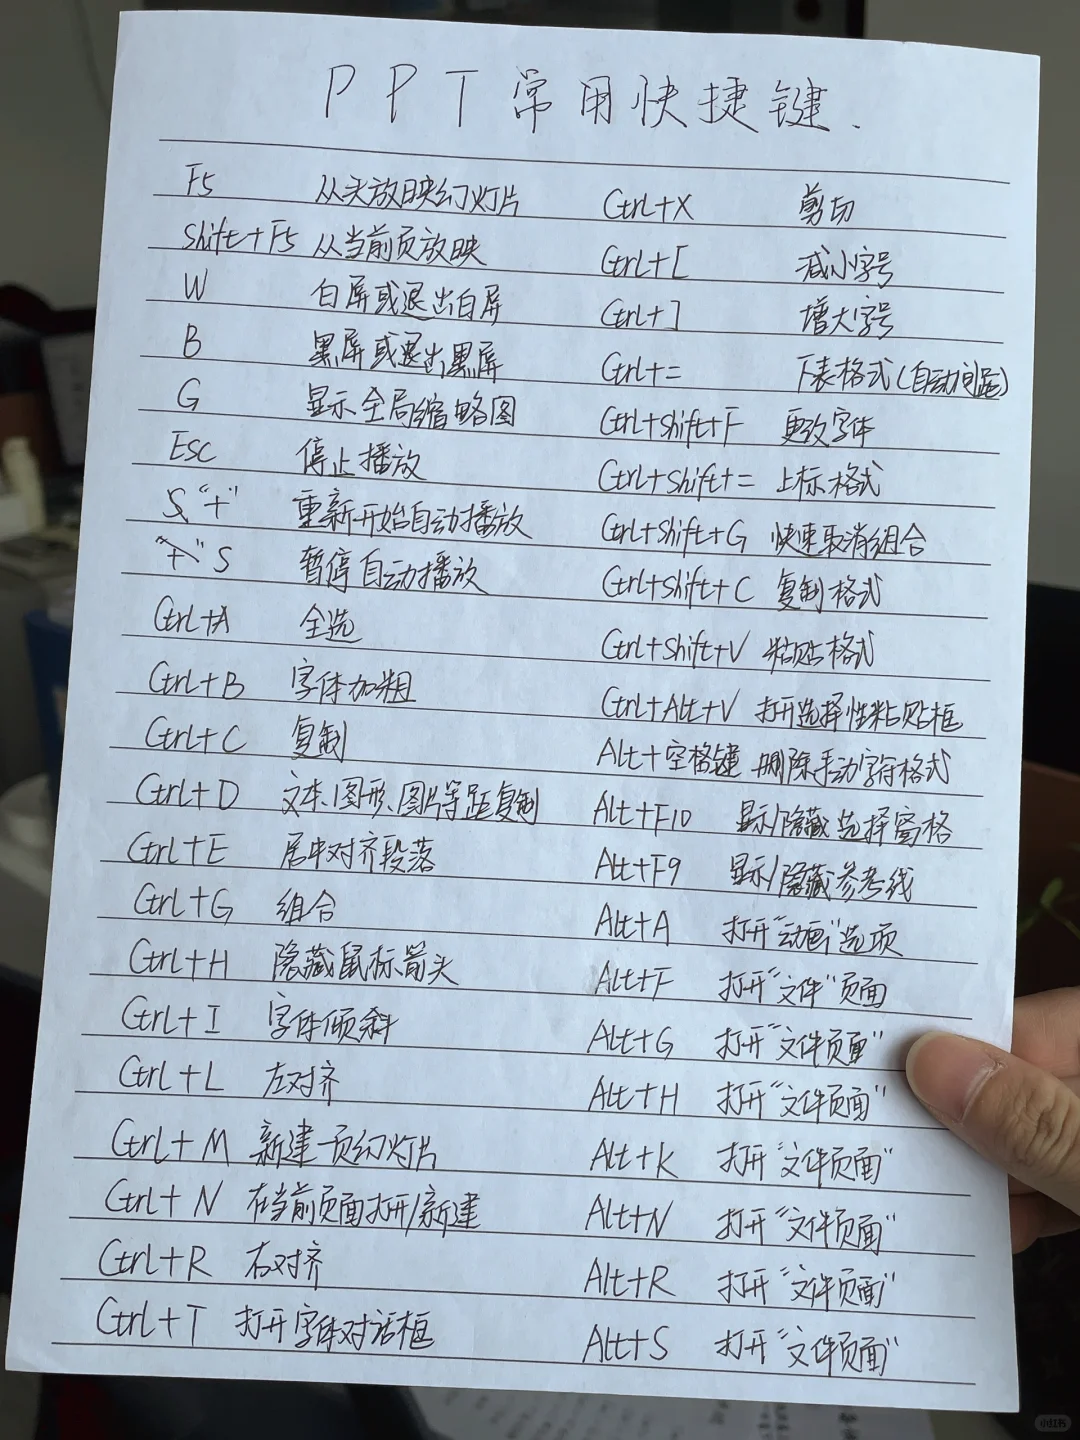 PPT常用快捷键.
F5 从头放映幻灯片 Ctrl+X 剪切
Shift+F5 从当前页放映 Ctrl+[ 减小字号
W 白屏或退出白屏 Ctrl+] 增大字号
B 黑屏或退出黑屏 Ctrl+= 下表格式(自动间距)
G 显示全局缩略图 Ctrl+Shift+F 更改字体
ESC 停止播放 Ctrl+Shift+= 上标格式
S、"+" 重新开始自动播放 Ctrl+Shift+G 快速取消组合
"+"S 暂停自动播放 Ctrl+Shift+C 复制格式
Ctrl+A 全选 Ctrl+Shift+V 粘贴格式
Ctrl+B 字体加粗 Ctrl+Alt+V 打开选择性粘贴框
Ctrl+C 复制 Alt+空格键 删除手动字符格式
Ctrl+D 文本、图形、图片等距复制 Alt+F10 显示/隐藏选择窗格
Ctrl+E 居中对齐段落 Alt+F9 显示/隐藏参考线
Ctrl+G 组合 Alt+A 打开"动画"选项
Ctrl+H 隐藏鼠标箭头 Alt+F 打开"文件"页面
Ctrl+I 字体倾斜 Alt+G 打开"文件页面"
Ctrl+L 左对齐 Alt+H 打开"文件页面"
Ctrl+M 新建一页幻灯片 Alt+K 打开"文件页面"
Ctrl+N 在当前页面打开/新建 Alt+N 打开"文件页面"
Ctrl+R 右对齐 Alt+R 打开"文件页面"
Ctrl+T 打开字体对话框 Alt+S 打开"文件页面"
小红书